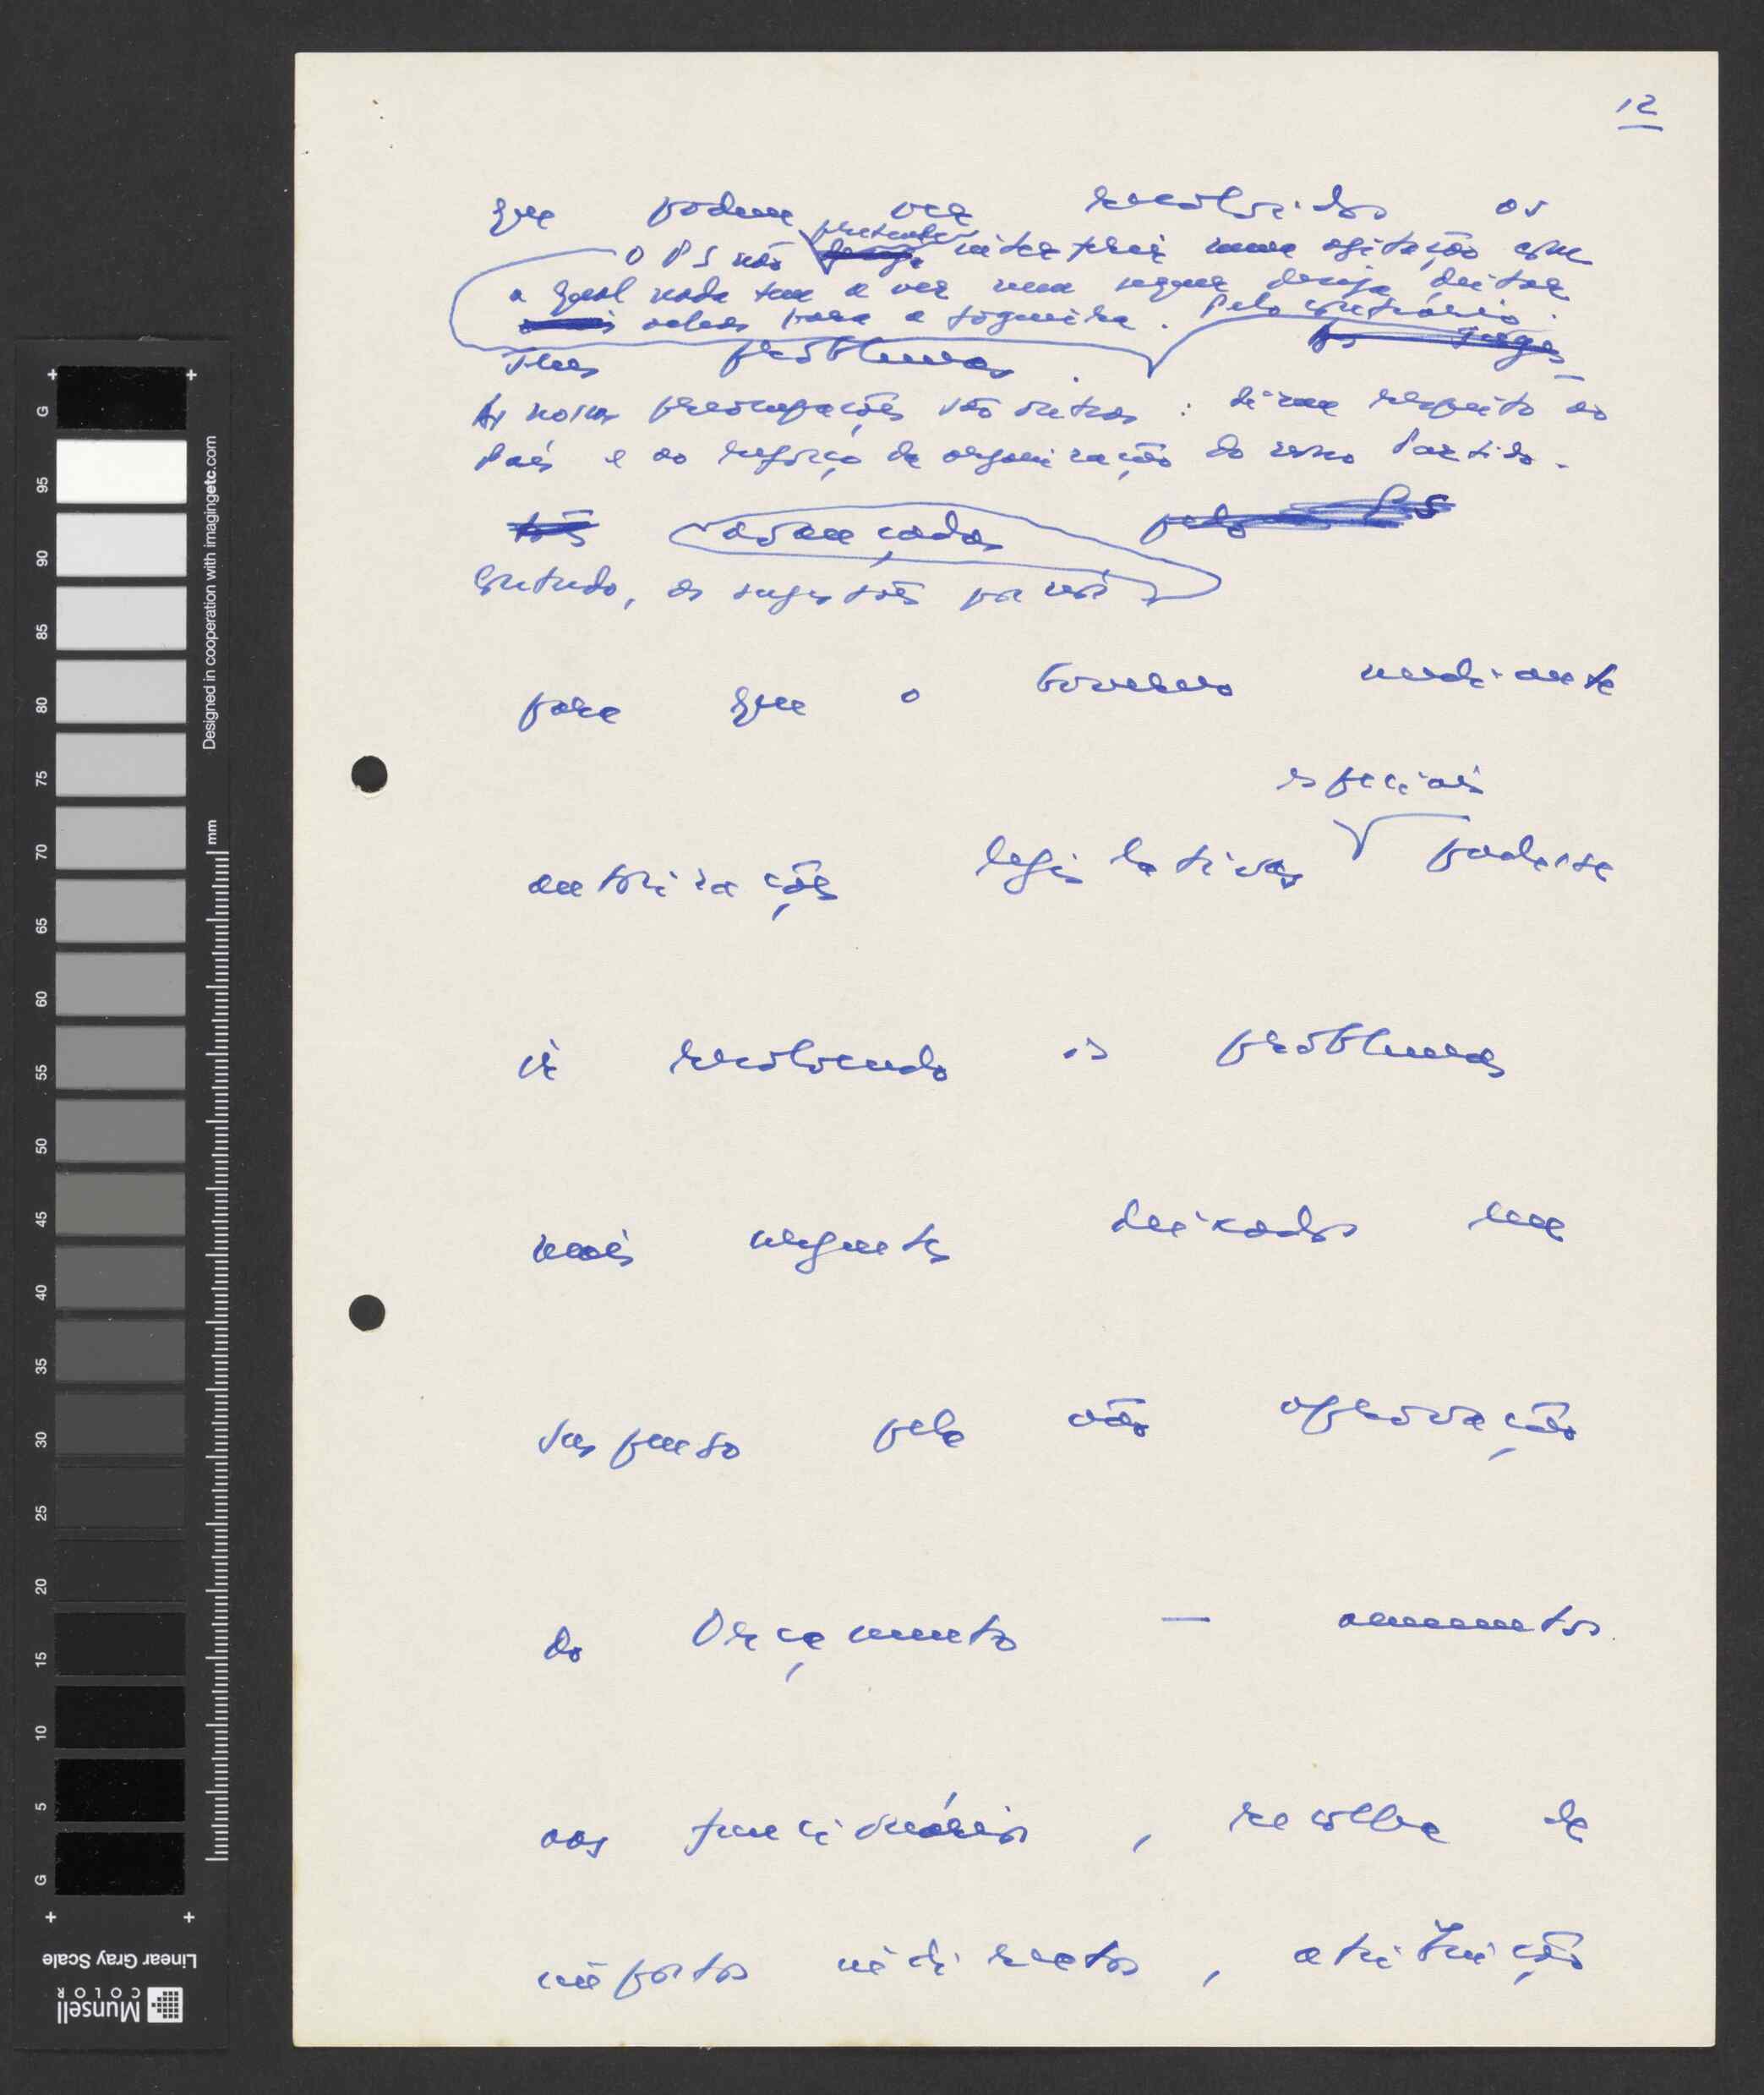 12
que podem ser resolvidos os
O PS não pretende interferir numa agitação com
a qual nada tem a ver nem sequer deseja deitar
achas para a fogueira. Pelo contrário.
seus problemas.
As nossas preocupações são outras: dizem respeito ao
País e ao reforço da organização do nosso Partido.
avançadas
Contudo, as sugestões por nós
para que o Governo mediante
especiais
autorizações legislativas pudesse
ir resolvendo os problemas
mais urgentes deixados em
suspenso pela não aprovação
do Orçamento — aumentos
aos funcionários, recolha de
impostos indirectos, atribuição
G
95
90
85
80
75
70
65
60
55
50
45
40
35
30
25
20
15
10
5
G
Designed in cooperation with imagingetc.com
mm
Linear Gray Scale
Munsell
COLOR